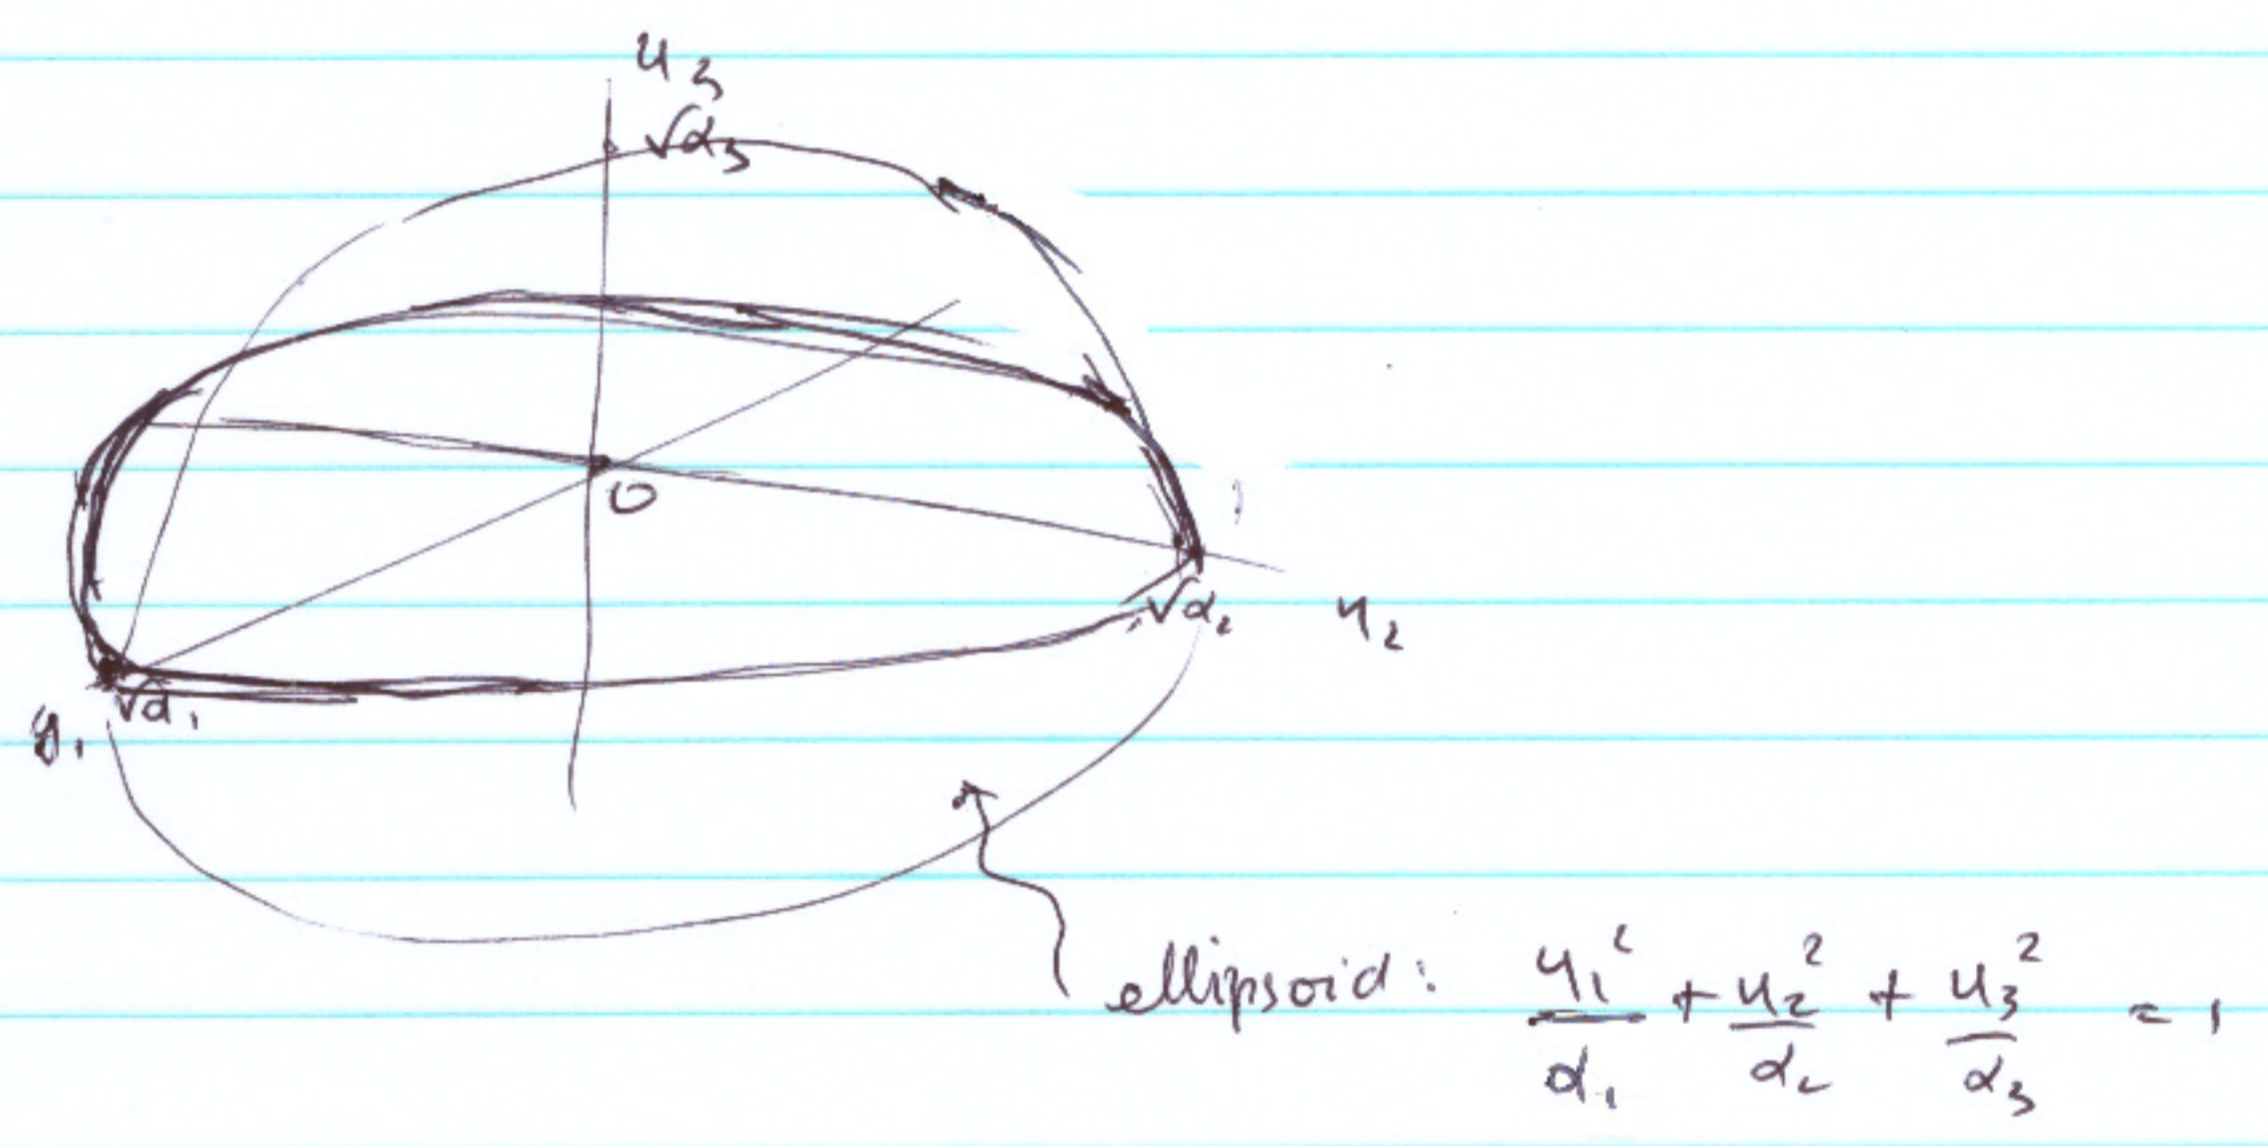 u₃
√α₃
0
√α₂
u₂
√α₁
y₁
ellipsoid: u₁²/α₁ + u₂²/α₂ + u₃²/α₃ = 1